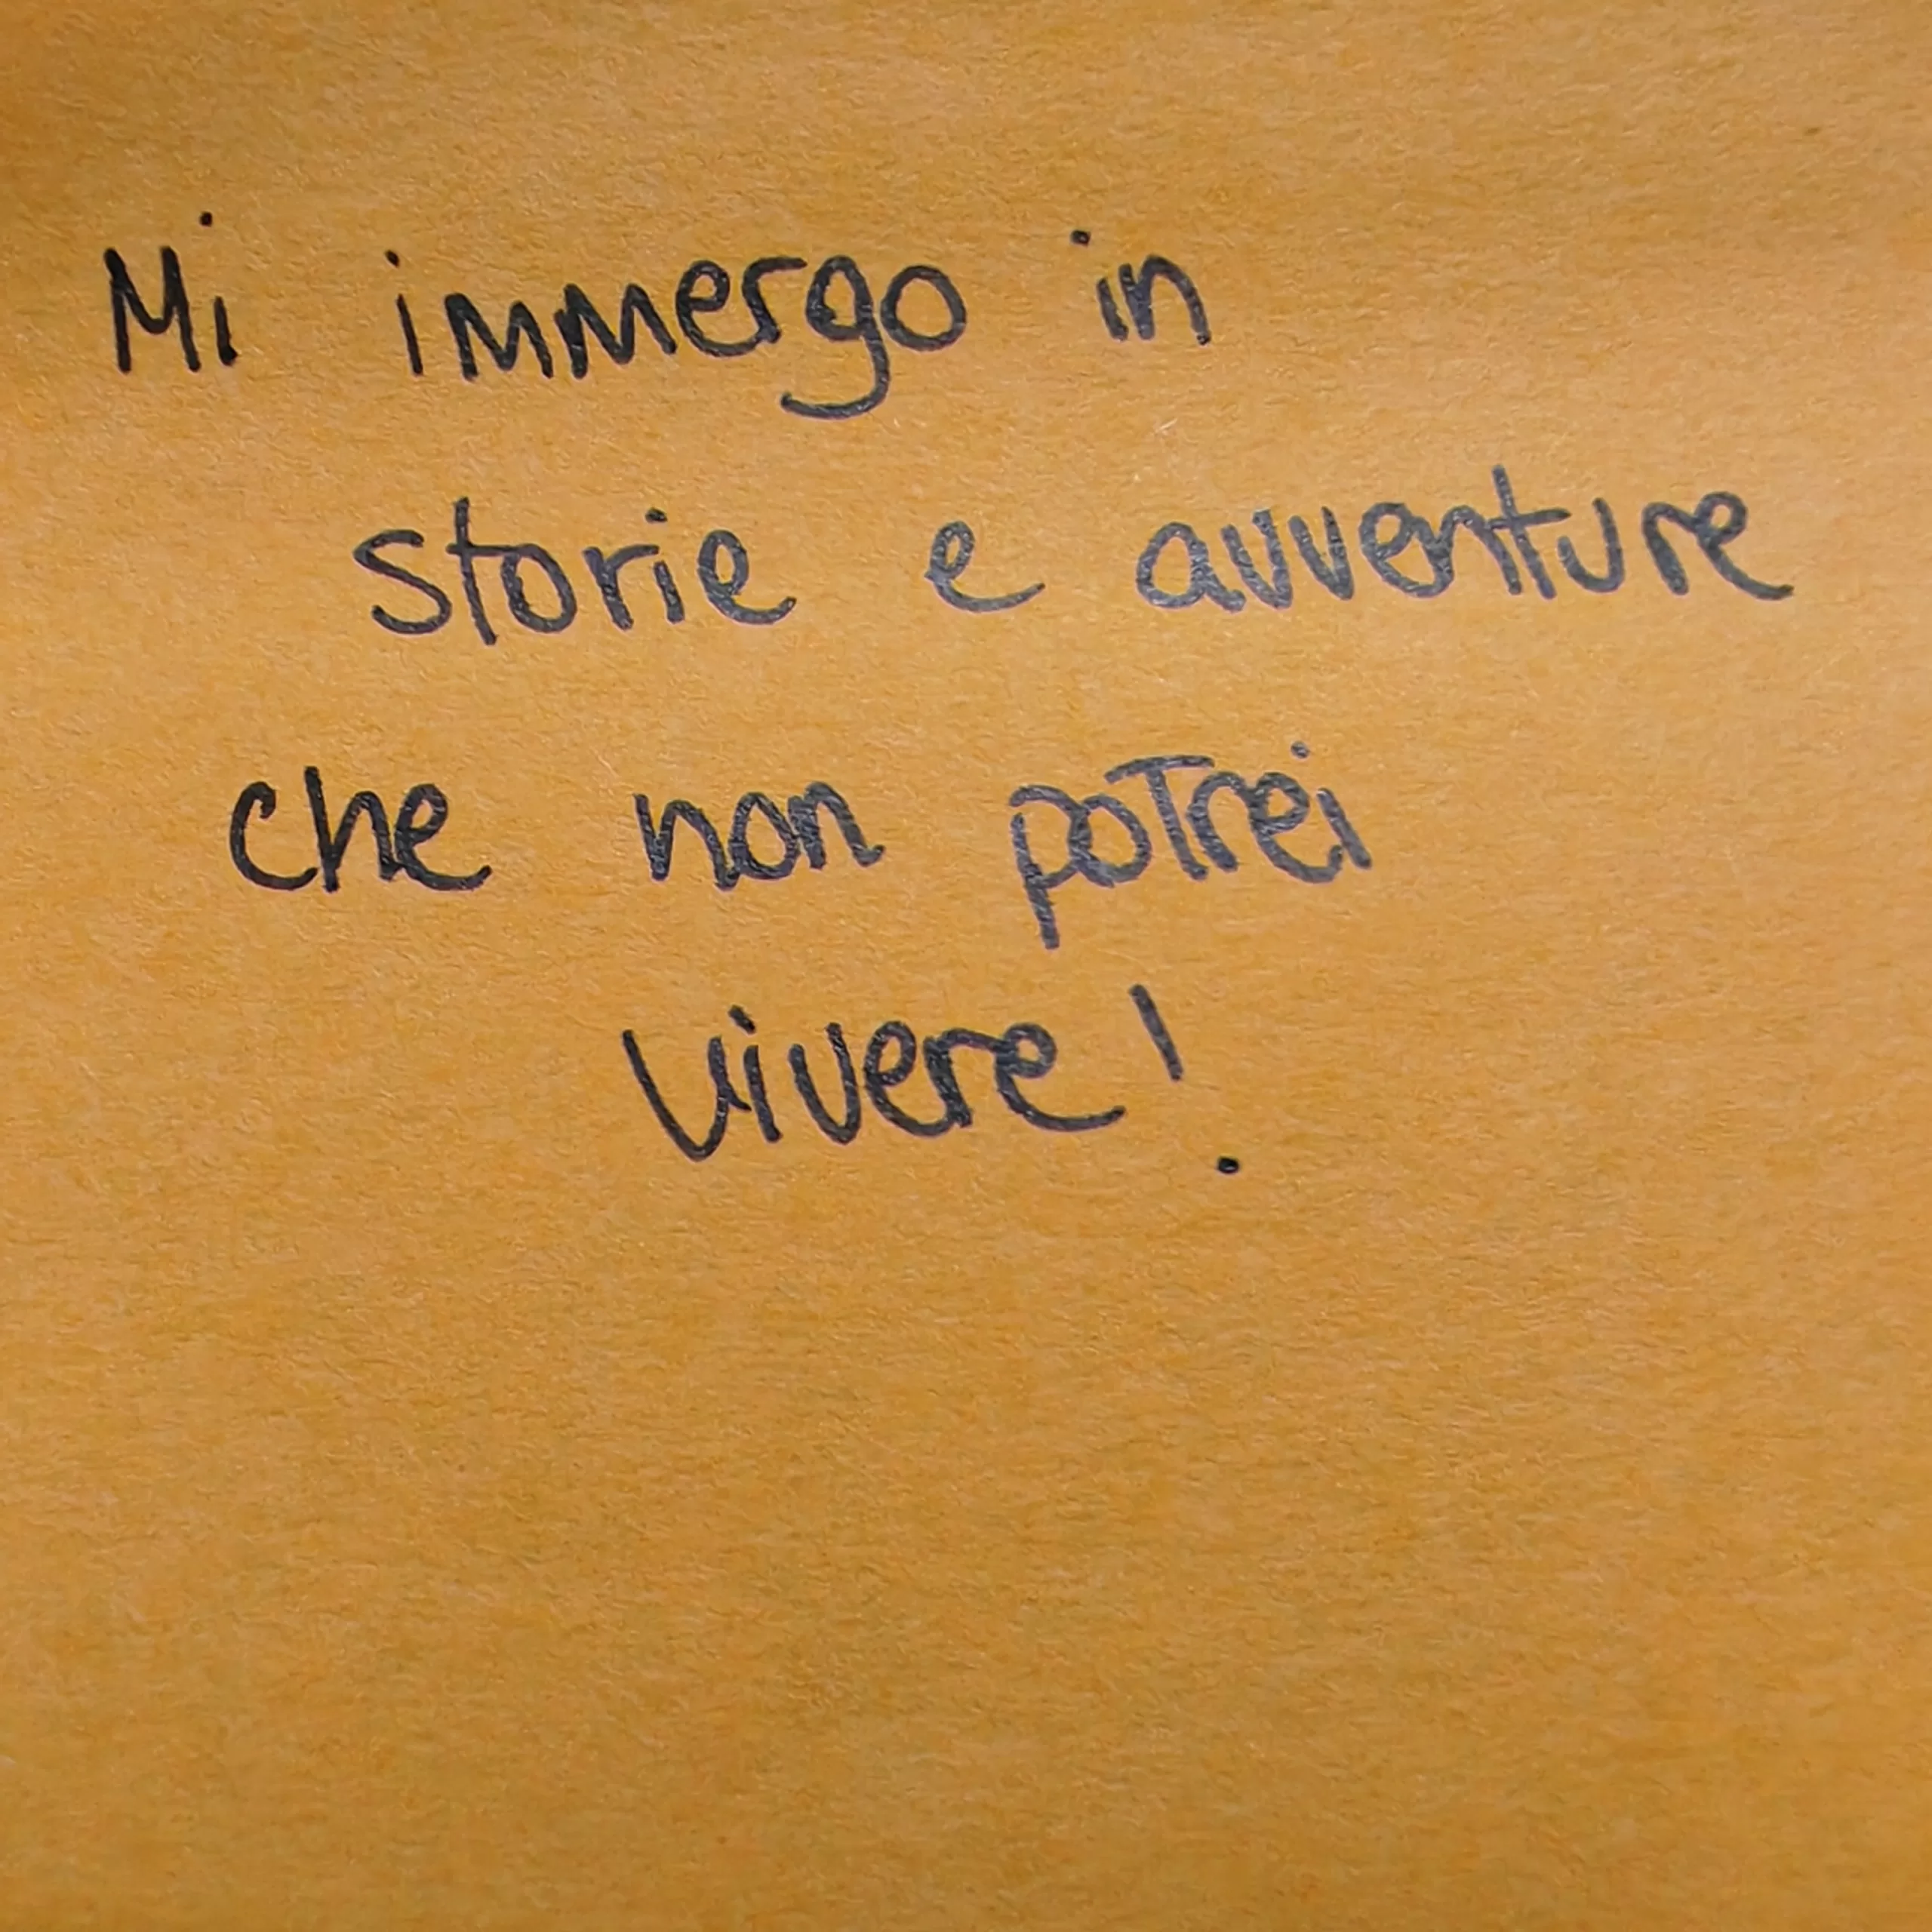 Mi immergo in
storie e avventure
che non potrei
vivere!